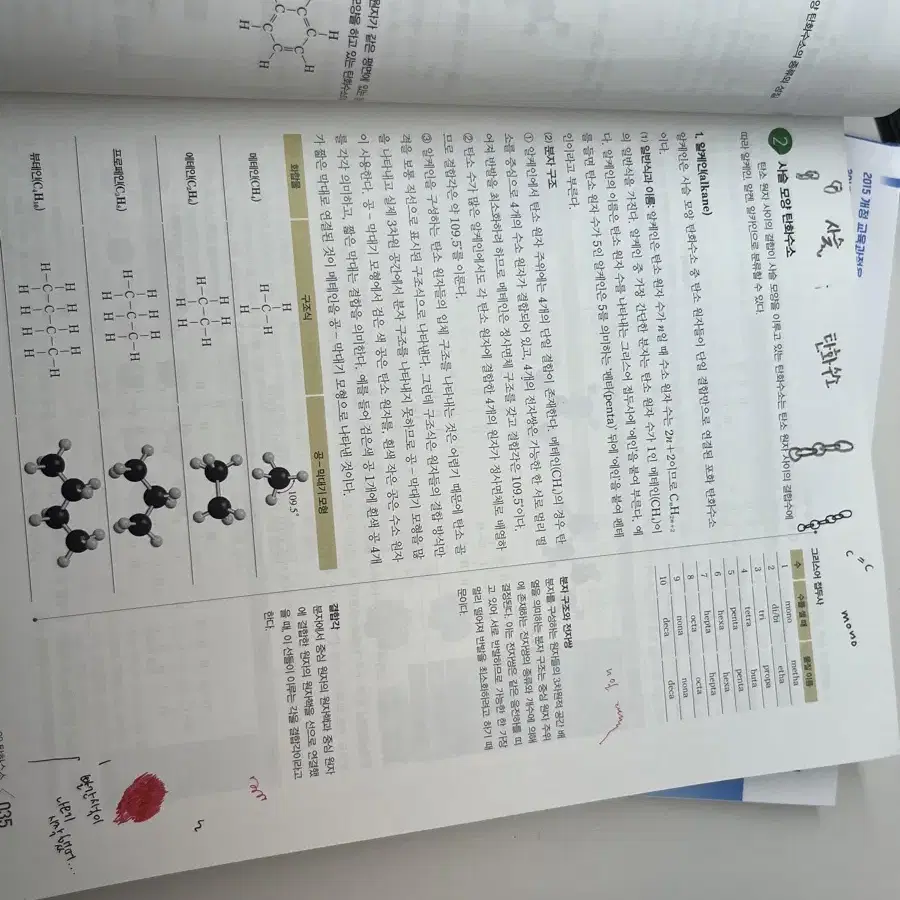 2015 개정 교육과정
양 탄화수소의 종류와 성질
원자가 같은 평면에 있는
모양을 하고 있는 탄화수소의
사슬 : 탄화수소
C=C
mono
2 사슬 모양 탄화수소
탄소 원자 사이의 결합이 사슬 모양을 이루고 있는 탄화수소는 탄소 원자 사이의 결합수에
따라 알케인, 알켄, 알카인으로 분류할 수 있다.
1. 알케인(alkane)
알케인은 사슬 모양 탄화수소 중 탄소 원자들이 단일 결합만으로 연결된 포화 탄화수소
이다.
(1) 일반식과 이름: 알케인은 탄소 원자 수가 n일 때 수소 원자 수는 2n+2이므로 CnH2n+2
의 일반식을 가진다. 알케인 중 가장 간단한 분자는 탄소 원자 수가 1인 메테인(CH₄)이
다. 알케인의 이름은 탄소 원자 수를 나타내는 그리스어 접두사에 '에인'을 붙여 부른다. 예
를 들면 탄소 원자 수가 5인 알케인은 5를 의미하는 '펜타(penta)' 뒤에 '에인'을 붙여 펜테
인이라고 부른다.
(2) 분자 구조
① 알케인에서 탄소 원자 주위에는 4개의 단일 결합이 존재한다. 메테인(CH₄)의 경우 탄
소를 중심으로 4개의 수소 원자가 결합되어 있고, 4개의 전자쌍은 가능한 한 서로 멀리 떨
어져 반발을 최소화하려 하므로 메테인은 정사면체 구조를 갖고 결합각은 109.5°이다.
② 탄소 수가 많은 알케인에서도 각 탄소 원자에 결합한 4개의 원자가 정사면체로 배열하
므로 결합각은 약 109.5°를 이룬다.
③ 알케인을 구성하는 탄소 원자들의 입체 구조를 나타내는 것은 어렵기 때문에 탄소 골
격을 보통 직선으로 표시된 구조식으로 나타낸다. 그런데 구조식은 원자들의 결합 방식만
을 나타내고 실제 3차원 공간에서 분자 구조를 나타내지 못하므로 공-막대기 모형을 많
이 사용한다. 공-막대기 모형에서 검은 색 공은 탄소 원자를, 흰색 작은 공은 수소 원자
를 각각 의미하고, 짧은 막대는 결합을 의미한다. 예를 들어 검은색 공 1개에 흰색 공 4개
가 짧은 막대로 연결된 것이 메테인을 공-막대기 모형으로 나타낸 것이다.
화합물 구조식 공-막대기 모형
메테인(CH₄)
H
H-C-H
H
109.5°
에테인(C₂H₆)
H H
H-C-C-H
H H
프로페인(C₃H₈)
H H H
H-C-C-C-H
H H H
뷰테인(C₄H₁₀)
H H H H
H-C-C-C-C-H
H H H H
그리스어 접두사
수 수를 셀 때 물질 이름
1 mono metha
2 di/bi etha
3 tri propa
4 tetra buta
5 penta penta
6 hexa hexa
7 hepta hepta
8 octa octa
9 nona nona
10 deca deca
분자 구조와 전자쌍
분자를 구성하는 원자들의 3차원적 공간 배
열을 의미하는 분자 구조는 중심 원자 주위
에 존재하는 전자쌍의 종류와 개수에 의해
결정된다. 이는 전자쌍은 같은 음전하를 띠
고 있어 서로 반발하므로 가능한 한 가장
멀리 떨어져 반발을 최소화하려고 하기 때
문이다.
결합각
분자에서 중심 원자의 원자핵과 중심 원자
에 결합한 원자의 원자핵을 선으로 연결했
을 때 이 선들이 이루는 각을 결합각이라고
한다.
035